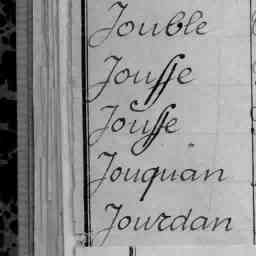 Jouble
Jousse
Jousse
Jouquan
Jourdan